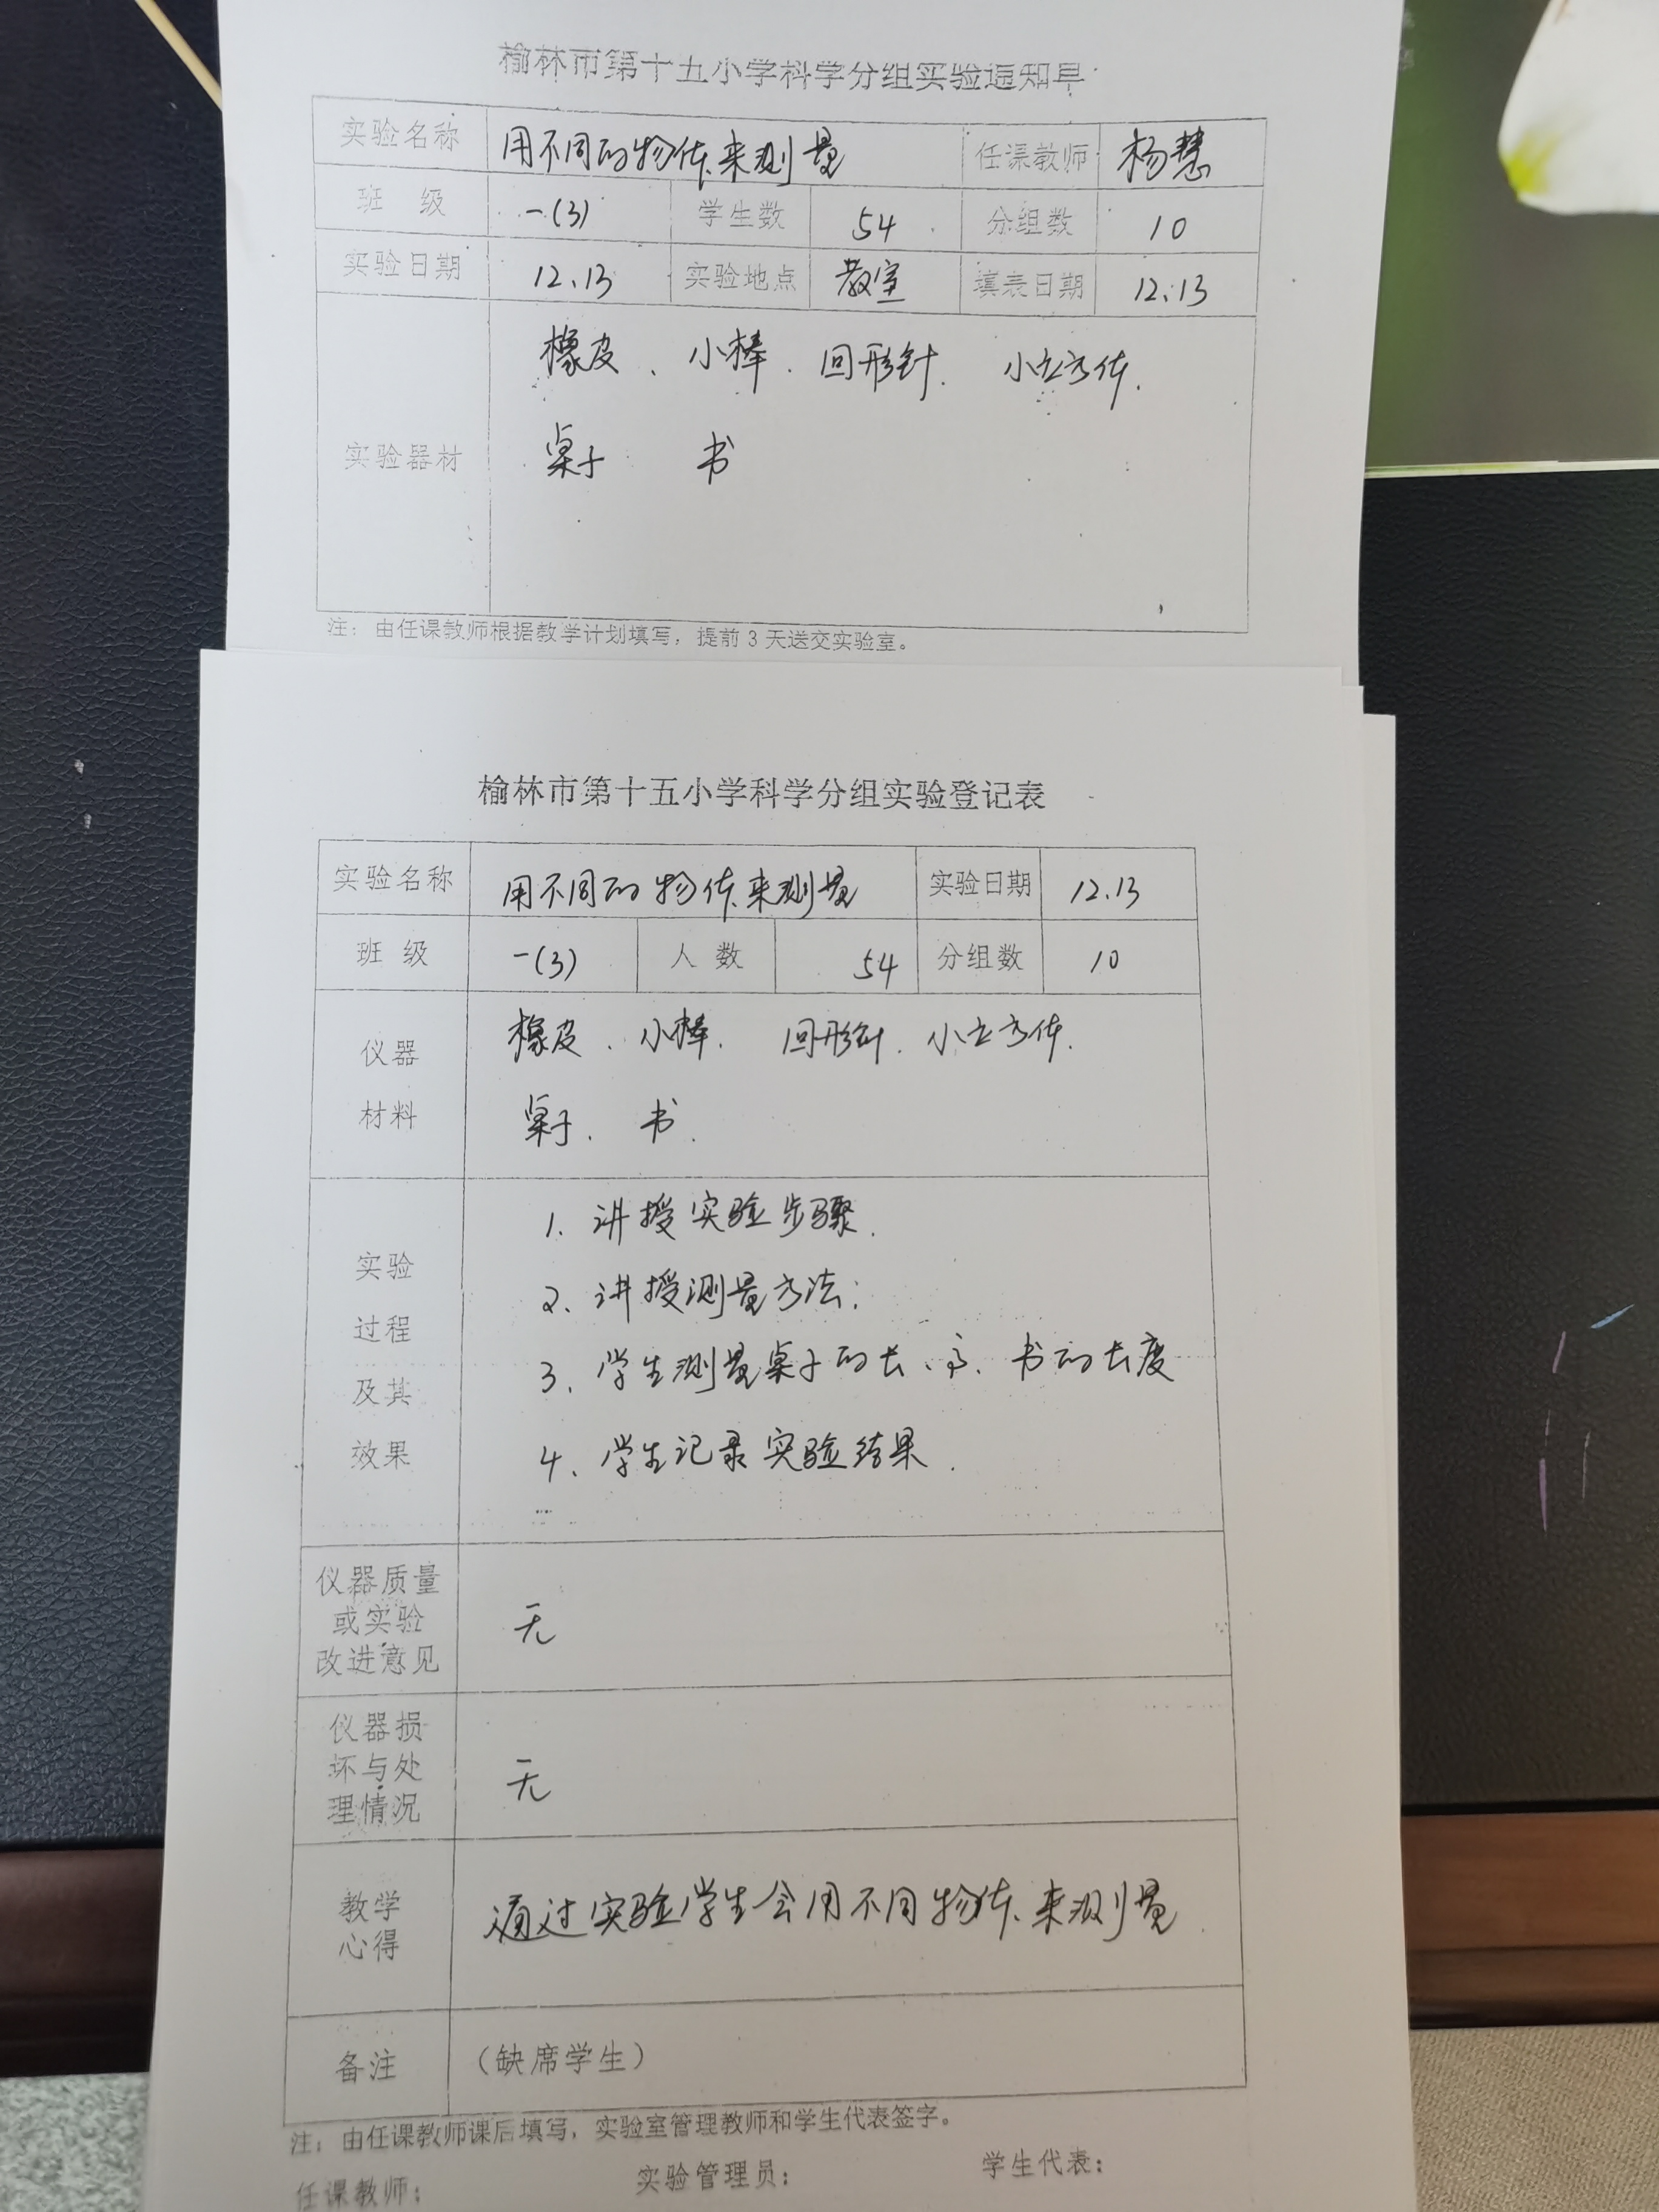 榆林市第十五小学科学分组实验通知单
实验名称 用不同的物体来测量 任课教师 杨慧
班 级 一(3) 学生数 54 分组数 10
实验日期 12.13 实验地点 教室 填表日期 12.13
橡皮、小棒、回形针、小立方体、
实验器材 桌子 书
注：由任课教师根据教学计划填写，提前3天送交实验室。
榆林市第十五小学科学分组实验登记表
实验名称 用不同的物体来测量 实验日期 12.13
班 级 一(3) 人 数 54 分组数 10
仪器 橡皮、小棒、回形针、小立方体、
材料 桌子、书、
1、讲授实验步骤、
实验
2、讲授测量方法；
过程
3、学生测量桌子的长、高、书的长度
及其
效果 4、学生记录实验结果、
仪器质量
或实验 无
改进意见
仪器损
坏与处 无
理情况
教学 通过实验学生会用不同物体来测量、
心得
备注 （缺席学生）
注：由任课教师课后填写，实验室管理教师和学生代表签字。
任课教师： 实验管理员： 学生代表：